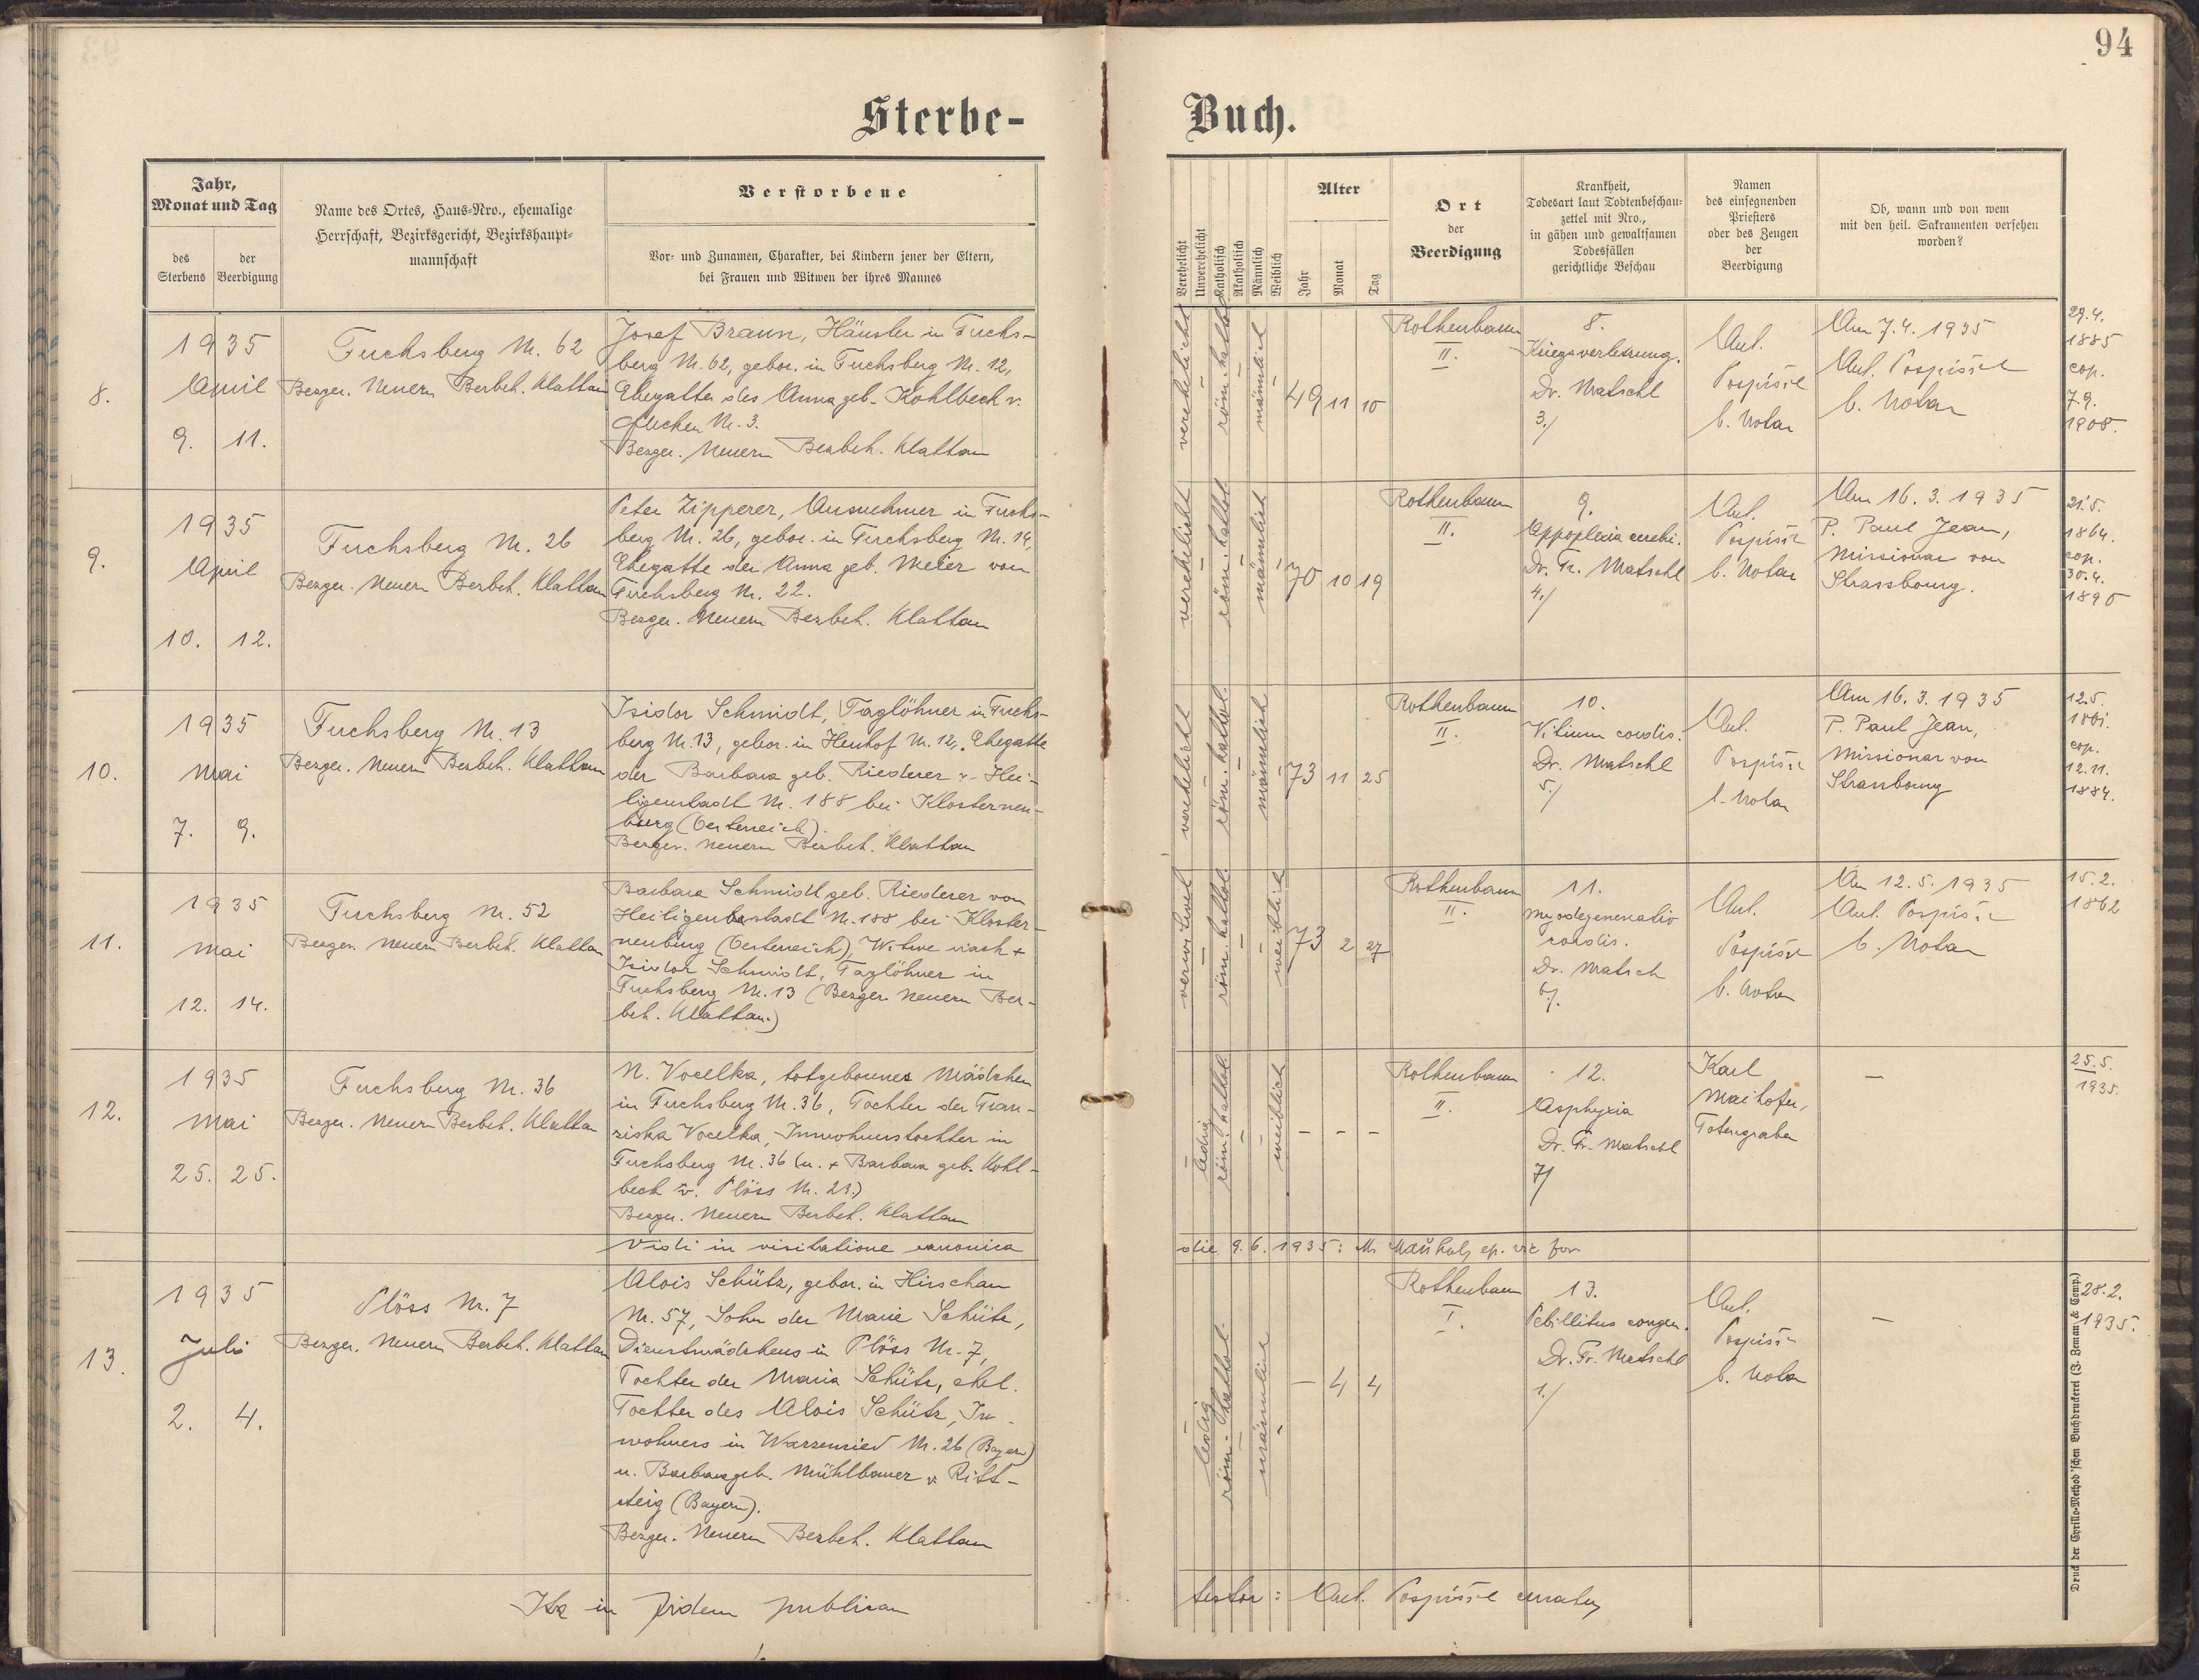 94
Sterbe-
Buch.
Jahr,
Monat und Tag
des
Sterbens
der
Beerdigung
Name des Ortes, Haus-Nro., ehemalige
Herrschaft, Bezirksgericht, Bezirkshaupt-
mannschaft
Verstorbene
Vor- und Zunamen, Charakter, bei Kindern jener der Eltern,
bei Frauen und Witwen der ihres Mannes
Verehelicht
Unverehelicht
Katholisch
Akatholisch
Männlich
Weiblich
Alter
Jahr
Monat
Tag
Ort
der
Beerdigung
Krankheit,
Todesart laut Todtenbeschau-
zettel mit Nro.,
in gähen und gewaltsamen
Todesfällen
gerichtliche Beschau
Namen
des einsegnenden
Priesters
oder des Zeugen
der
Beerdigung
Ob, wann und von wem
mit den heil. Sakramenten versehen
worden?
8.
1935
April
9. 11.
Fuchsberg Nr. 62
Bezger. Neuern Bezbeh. Klattau
Josef Braun, Häusler in Fuchs-
berg Nr. 62, gebor. in Fuchsberg Nr. 12,
Ehegatte des Anna geb. Kohlbeck v.
Nr. 3.
Bezger. Neuern Bezbeh. Klattau
verehelicht
röm. kathol.
männlich
49 11 10
Rothenbaum
II.
8.
Kriegsverletzung.
Dr. Matschl
3./
Ant.
Pospíšil
b. Notar
Am 7.4. 1935
Ant. Pospíšil
b. Notar
29.4.
1885
cop.
7.9.
1908.
9.
1935
April
10. 12.
Fuchsberg Nr. 26
Bezger. Neuern Bezbeh. Klattau
Peter Zipperer, Ausnehmer in Fuchs-
berg Nr. 26, gebor. in Fuchsberg Nr. 14,
Ehegatte der Anna geb. Meier von
Fuchsberg Nr. 22.
Bezger. Neuern Bezbeh. Klattau
verehelicht
röm. kathol.
männlich
70 10 19
Rothenbaum
II.
9.
Appoplexia cerebi.
Dr. Fr. Matschl
4./
Ant.
Pospíšil
b. Notar
Am 16. 3. 1935
P. Paul Jean,
Missionar von
Strassbourg.
21.5.
1864.
cop.
30.4.
1890
10.
1935
Mai
7. 9.
Fuchsberg Nr. 13
Bezger. Neuern Bezbeh. Klattau
Isidor Schmidt, Taglöhner in Fuchs-
berg Nr. 13, gebor. in Heuhof Nr. 12, Ehegatte
der Barbara geb. Riederer v. Hei-
ligenstadt Nr. 188 bei Klosterneu-
burg (Oesterreich).
Bezger. Neuern Bezbeh. Klattau
verehelicht
röm. kathol.
männlich
73 11 25
Rothenbaum
II.
10.
Vitium cordis.
Dr. Matschl
5./
Ant.
Pospíšil
b. Notar
Am 16. 3. 1935
P. Paul Jean,
Missionar von
Strassbourg
12.5.
1861.
cop.
12.11.
1884.
11.
1935
Mai
12. 14.
Fuchsberg Nr. 52
Bezger. Neuern Bezbeh. Klattau
Barbara Schmidt geb. Riederer von
Heiligenstadt Nr. 188 bei Kloster-
neuburg (Oesterreich), Witwe nach +
Isidor Schmidt, Taglöhner in
Fuchsberg Nr. 13 (Bezger. Neuern Bez-
beh. Klattau.)
verwitwet
röm. kathol.
weiblich
73 2 27
Rothenbaum
II.
11.
Myodegeneratio
cordis.
Dr. Matsch
6/.
Ant.
Pospíšil
b. Notar
Am 12. 5. 1935
Ant. Pospíšil
b. Notar
15.2.
1862
12.
1935
Mai
25. 25.
Fuchsberg Nr. 36
Bezger. Neuern Bezbeh. Klattau
N. Vocelka, totgeborenes Mädchen
in Fuchsberg Nr. 36, Tochter der Fran-
ziska Vocelka, Inwohnerstochter in
Fuchsberg Nr. 36 (u. + Barbara geb. Kohl-
beck v. Plöss Nr. 21.)
Bezger. Neuern Bezbeh. Klattau
ledig
röm. kathol.
weiblich
- - -
Rothenbaum
II.
12.
Asphyxia
Dr. Fr. Matschl
7/
Karl
Maihofer,
Totengräber
—
25.5.
1935.
Vidi in visitatione canonica
die 9. 6. 1935:
13.
1935
Juli
2. 4.
Plöss Nr. 7
Bezger. Neuern Bezbeh. Klattau
Alois Schütz, gebor. in Hirschau
Nr. 57, Sohn der Marie Schütz,
Dienstmädchens in Plöss Nr. 7,
Tochter der Maria Schütz, ehel.
Tochter des Alois Schütz, In-
wohners in Warzenried Nr. 26 (Bayern)
u. Barbara geb. Mühlbauer v. Ritt-
steig (Bayern).
Bezger. Neuern Bezbeh. Klattau
ledig
röm. kathol.
männlich
— 4 4
Rothenbaum
I.
13.
Debillitas congen.
Dr. Fr. Matschl
1./
Ant.
Pospíšil
b. Notar
—
28.2.
1935.
Ita in fidem publicam
testor: Ant. Pospíšil
Druck der Cyrillo-Method'schen Buchdruckerei (J. Zeman & Comp.)